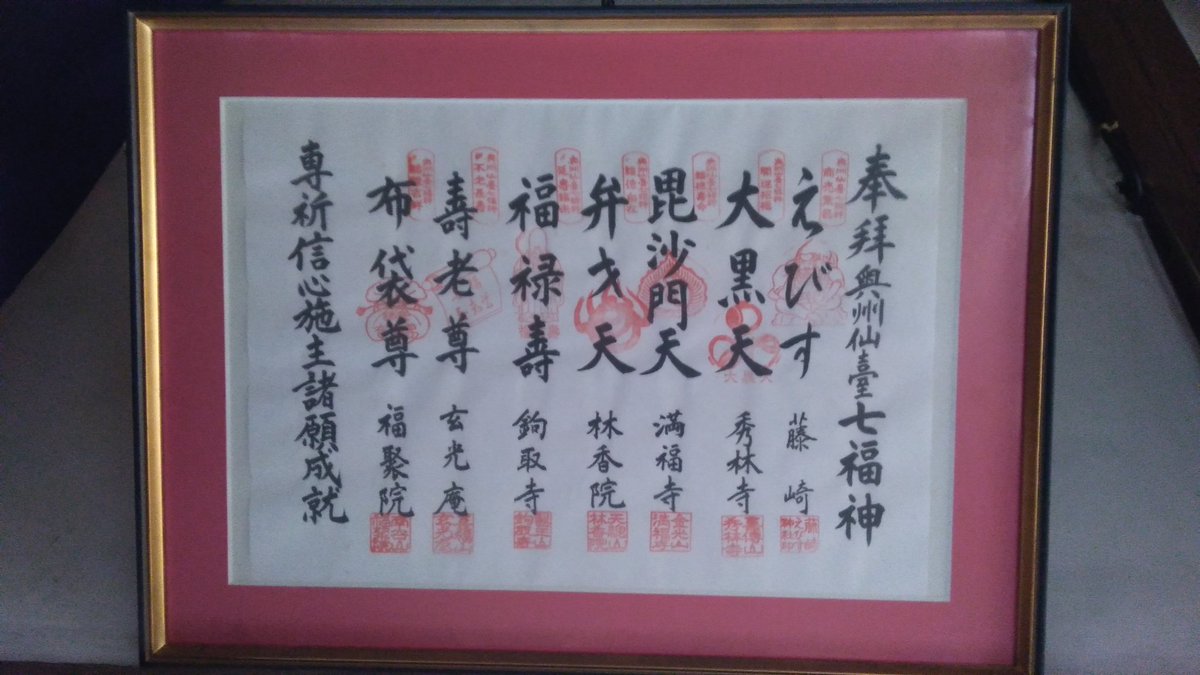 奉拝奥州仙臺七福神
えびす 藤崎
大黒天 秀林寺
毘沙門天 満福寺
弁才天 林香院
福禄壽 鉤取寺
壽老尊 玄光庵
布袋尊 福聚院
専祈信心施主諸願成就